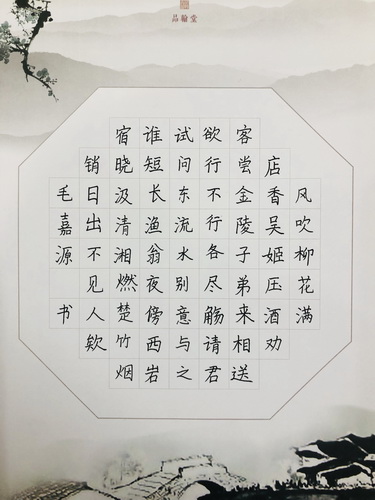 品翰堂
风吹柳花满
店香吴姬压酒劝
客尝金陵子弟来相送
欲行不行各尽觞请君
试问东流水别意与之
谁短长渔翁夜傍西岩
宿晓汲清湘燃楚竹烟
销日出不见人欸
毛嘉源书